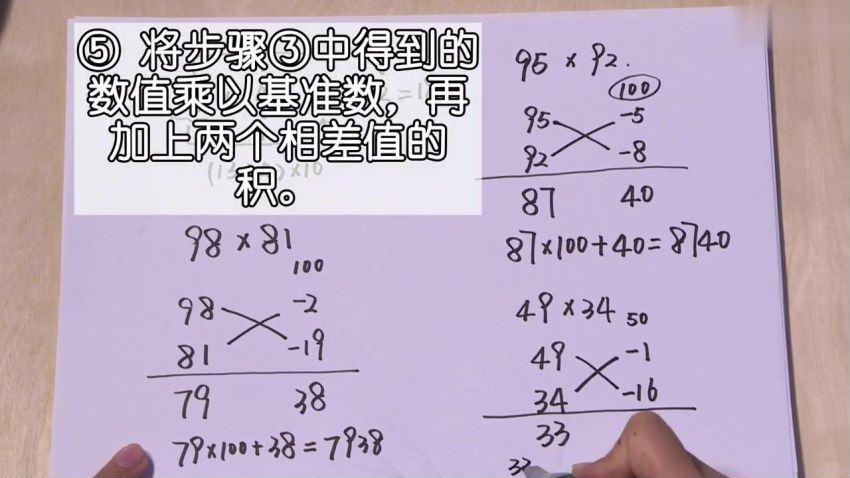 ⑤ 将步骤③中得到的
数值乘以基准数，再
加上两个相差值的
积。
95 × 92.
100
95 -5
92 -8
87 40
87×100+40=8740
98 × 81
100
98 -2
81 -19
79 38
79×100+38=7938
49 × 34 50
49 -1
34 -16
33